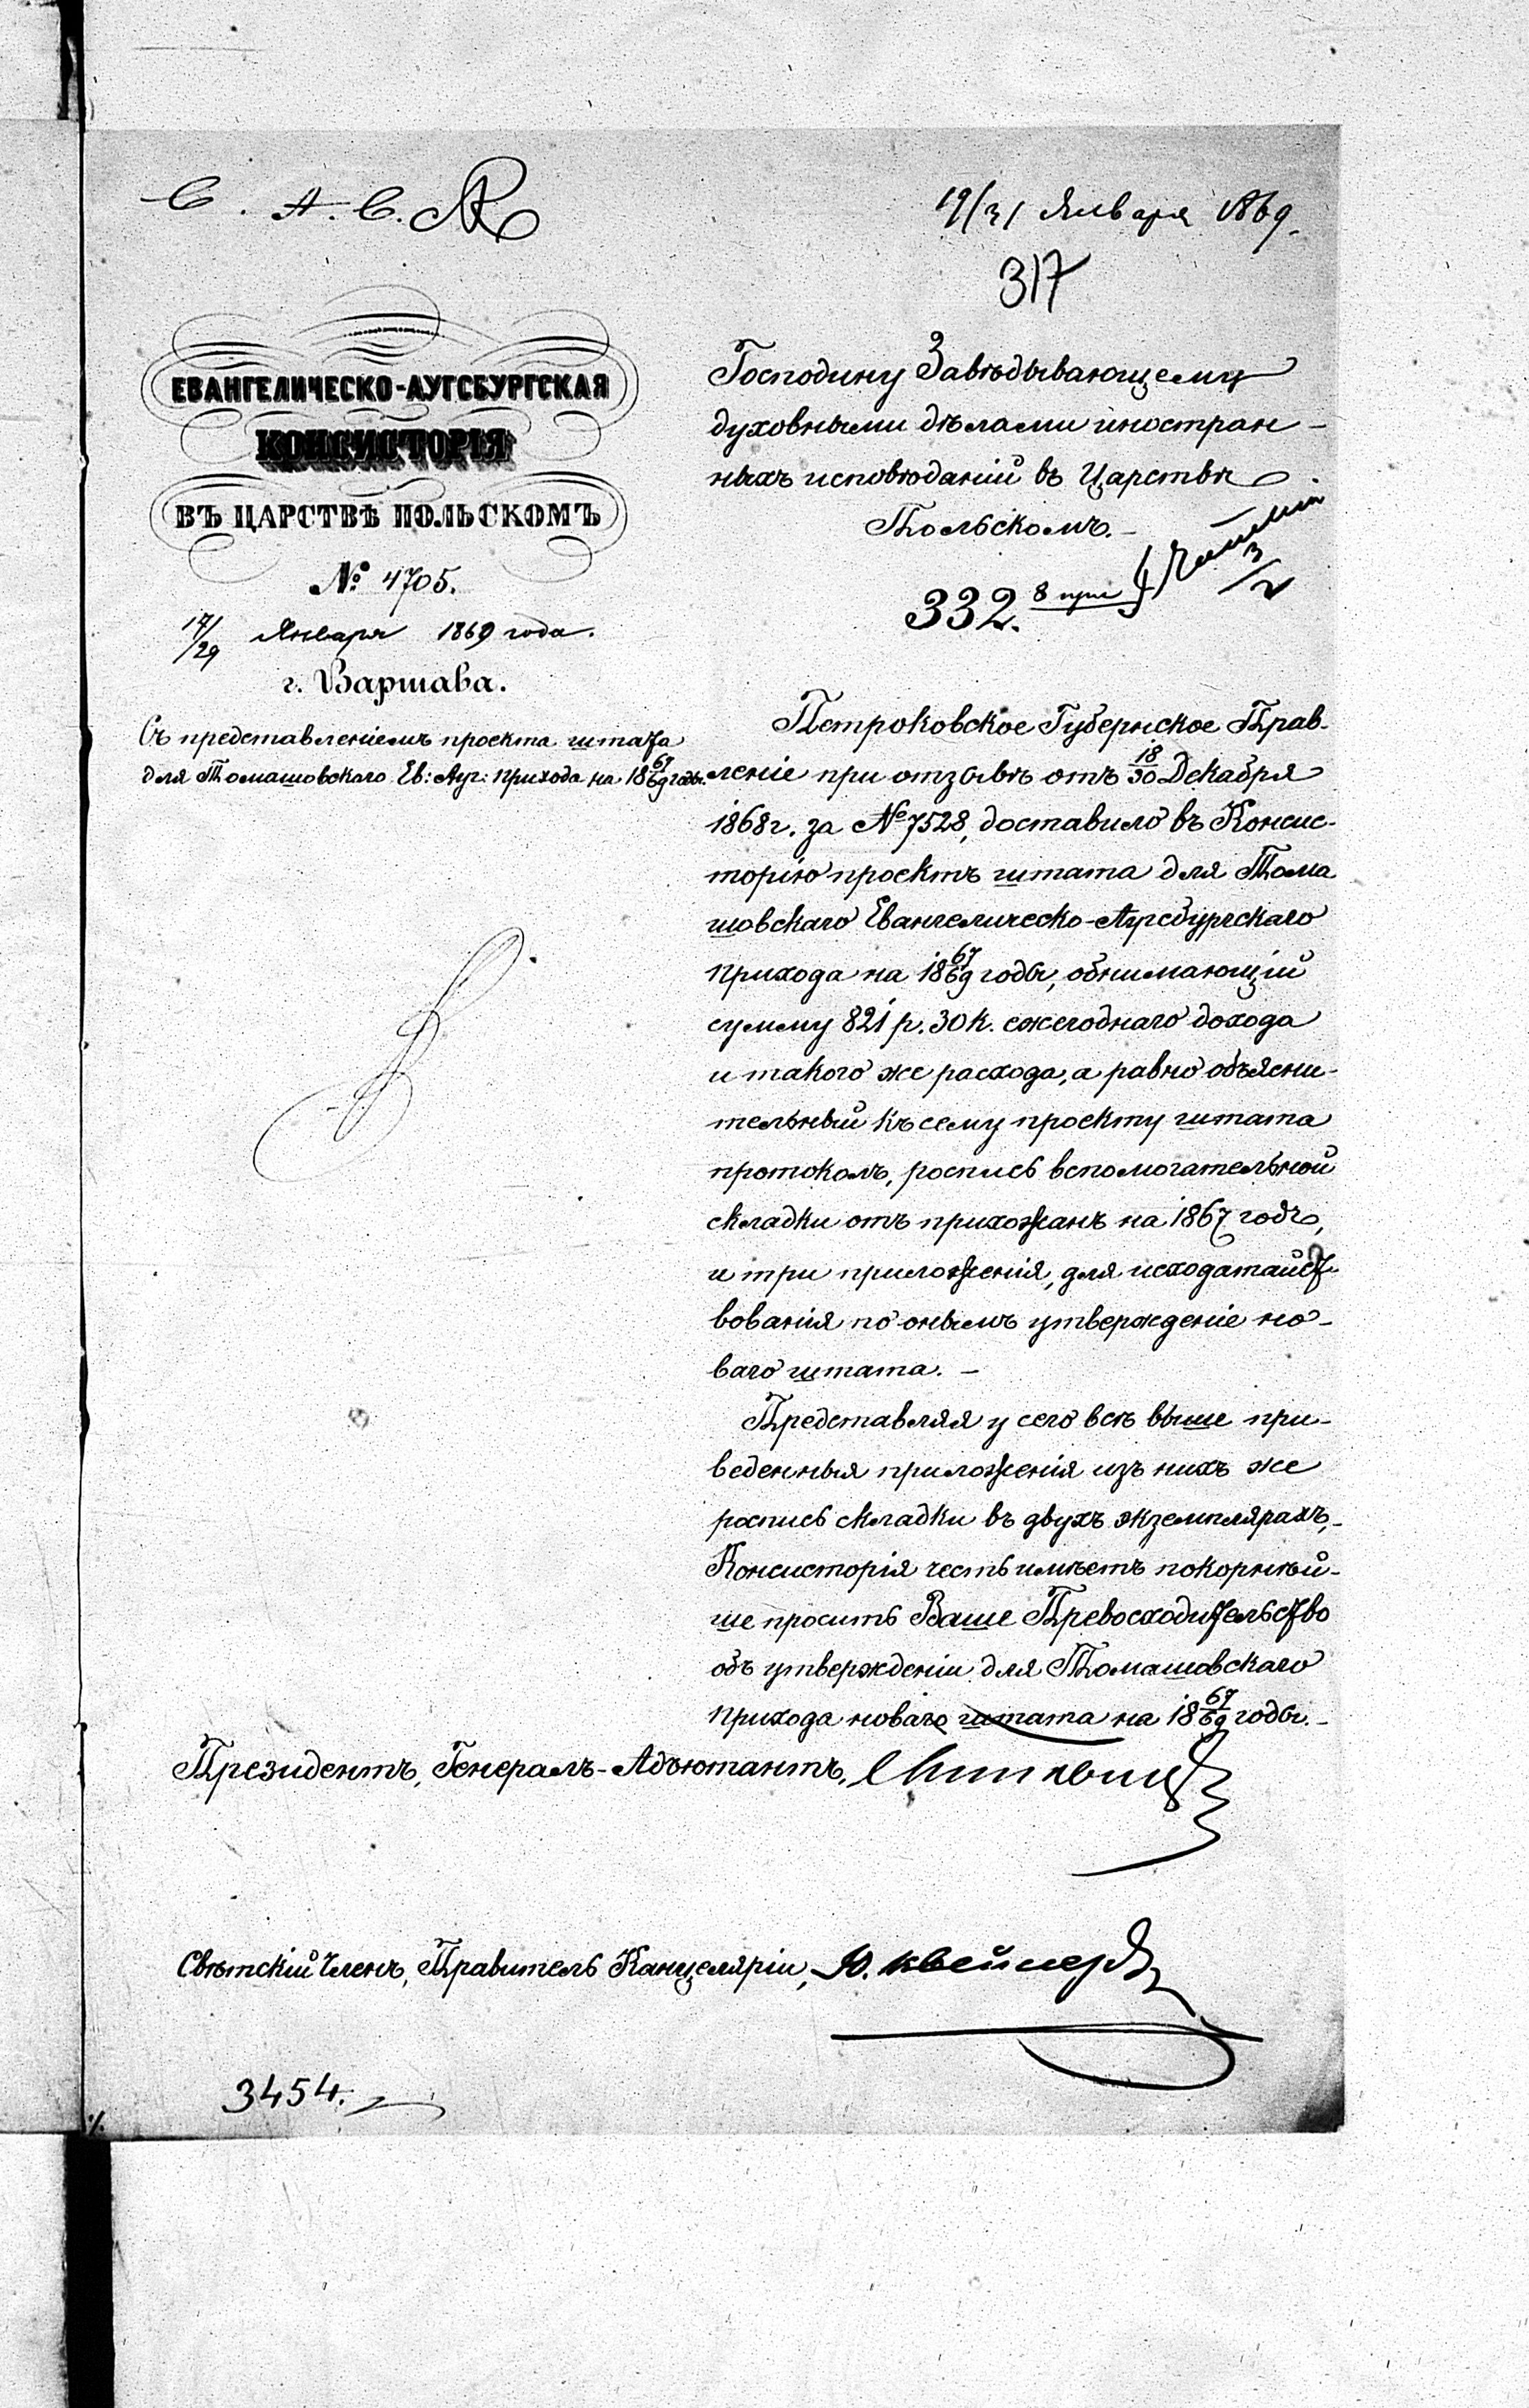 С. А. С.
19/31 Января 1869.
317
ЕВАНГЕЛИЧЕСКО-АУГСБУРГСКАЯ
КОНСИСТОРІЯ
ВЪ ЦАРСТВѢ ПОЛЬСКОМЪ
№ 4705.
17/29 Января 1869 года.
г. Варшава.
Съ представленіемъ проекта штата
для Томашовскаго Ев: Ауг: прихода на 18 67/69 годы.
Господину Завѣдывающему
духовными дѣлами иностран-
ныхъ исповѣданій въ Царствѣ
Польскомъ.-
332. 8 при
3/2
Петроковское Губернское Прав-
леніе при отзывѣ отъ 18/30 Декабря
1868 г. за № 7528, доставило въ Консис-
торію проектъ штата для Тома
шовскаго Евангелическо-Аугсбургскаго
прихода на 18 67/69 годы, обнимающій
сумму 821 р. 30 к. ежегоднаго дохода
и такого же расхода, а равно объясни-
тельный къ сему проекту штата
протоколъ, роспись вспомогательной
складки отъ прихожанъ на 1867 годъ,
и три приложенія, для исходатайст-
вованія по онымъ утвержденіе но-
ваго штата. -
Представляя у сего всѣ выше при-
веденныя приложенія изъ нихъ же
роспись складки въ двухъ экземплярахъ,-
Консисторія честь имѣетъ покорнѣй-
ше просить Ваше Превосходительство
объ утвержденіи для Томашовскаго
прихода новаго штата на 18 67/69 годы.-
Президентъ, Генералъ-Адъютантъ,
Свѣтскій Членъ, Правитель Канцеляріи,
3454.